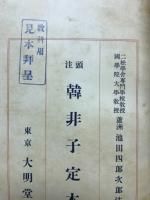 二松學舍專門學校教授
國學院大學教授
蘆洲 池田四郎次郎
頭注
韓非子定本
東京 大明堂
教科用
見本拜呈